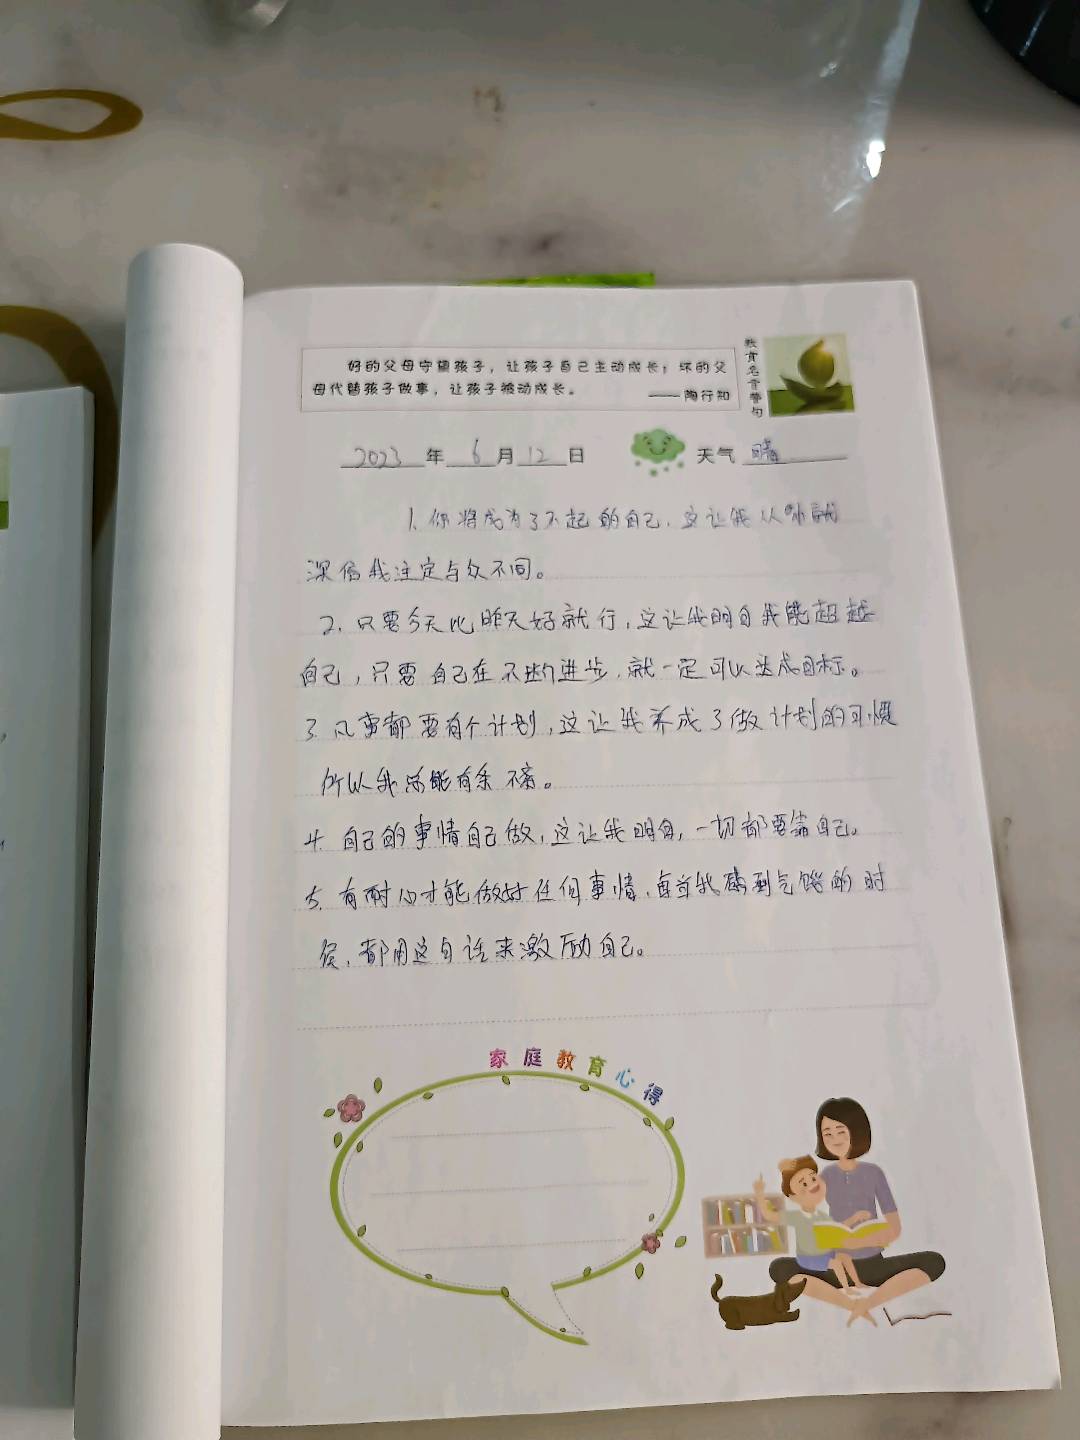 好的父母守望孩子，让孩子自己主动成长；坏的父
母代替孩子做事，让孩子被动成长。
——陶行知
教育名言警句
2023年6月12日 天气 晴
1. 你将成为了不起的自己，这让我从小就
深信我注定与众不同。
2. 只要今天比昨天好就行，这让我明白我能超越
自己，只要自己在不断进步，就一定可以达成目标。
3. 凡事都要有个计划，这让我养成了做计划的习惯
所以我总能有条不紊。
4. 自己的事情自己做，这让我明白，一切都要靠自己。
5. 有耐心才能做好任何事情，每当我感到气馁的时
候，都用这句话来激励自己。
家庭教育心得